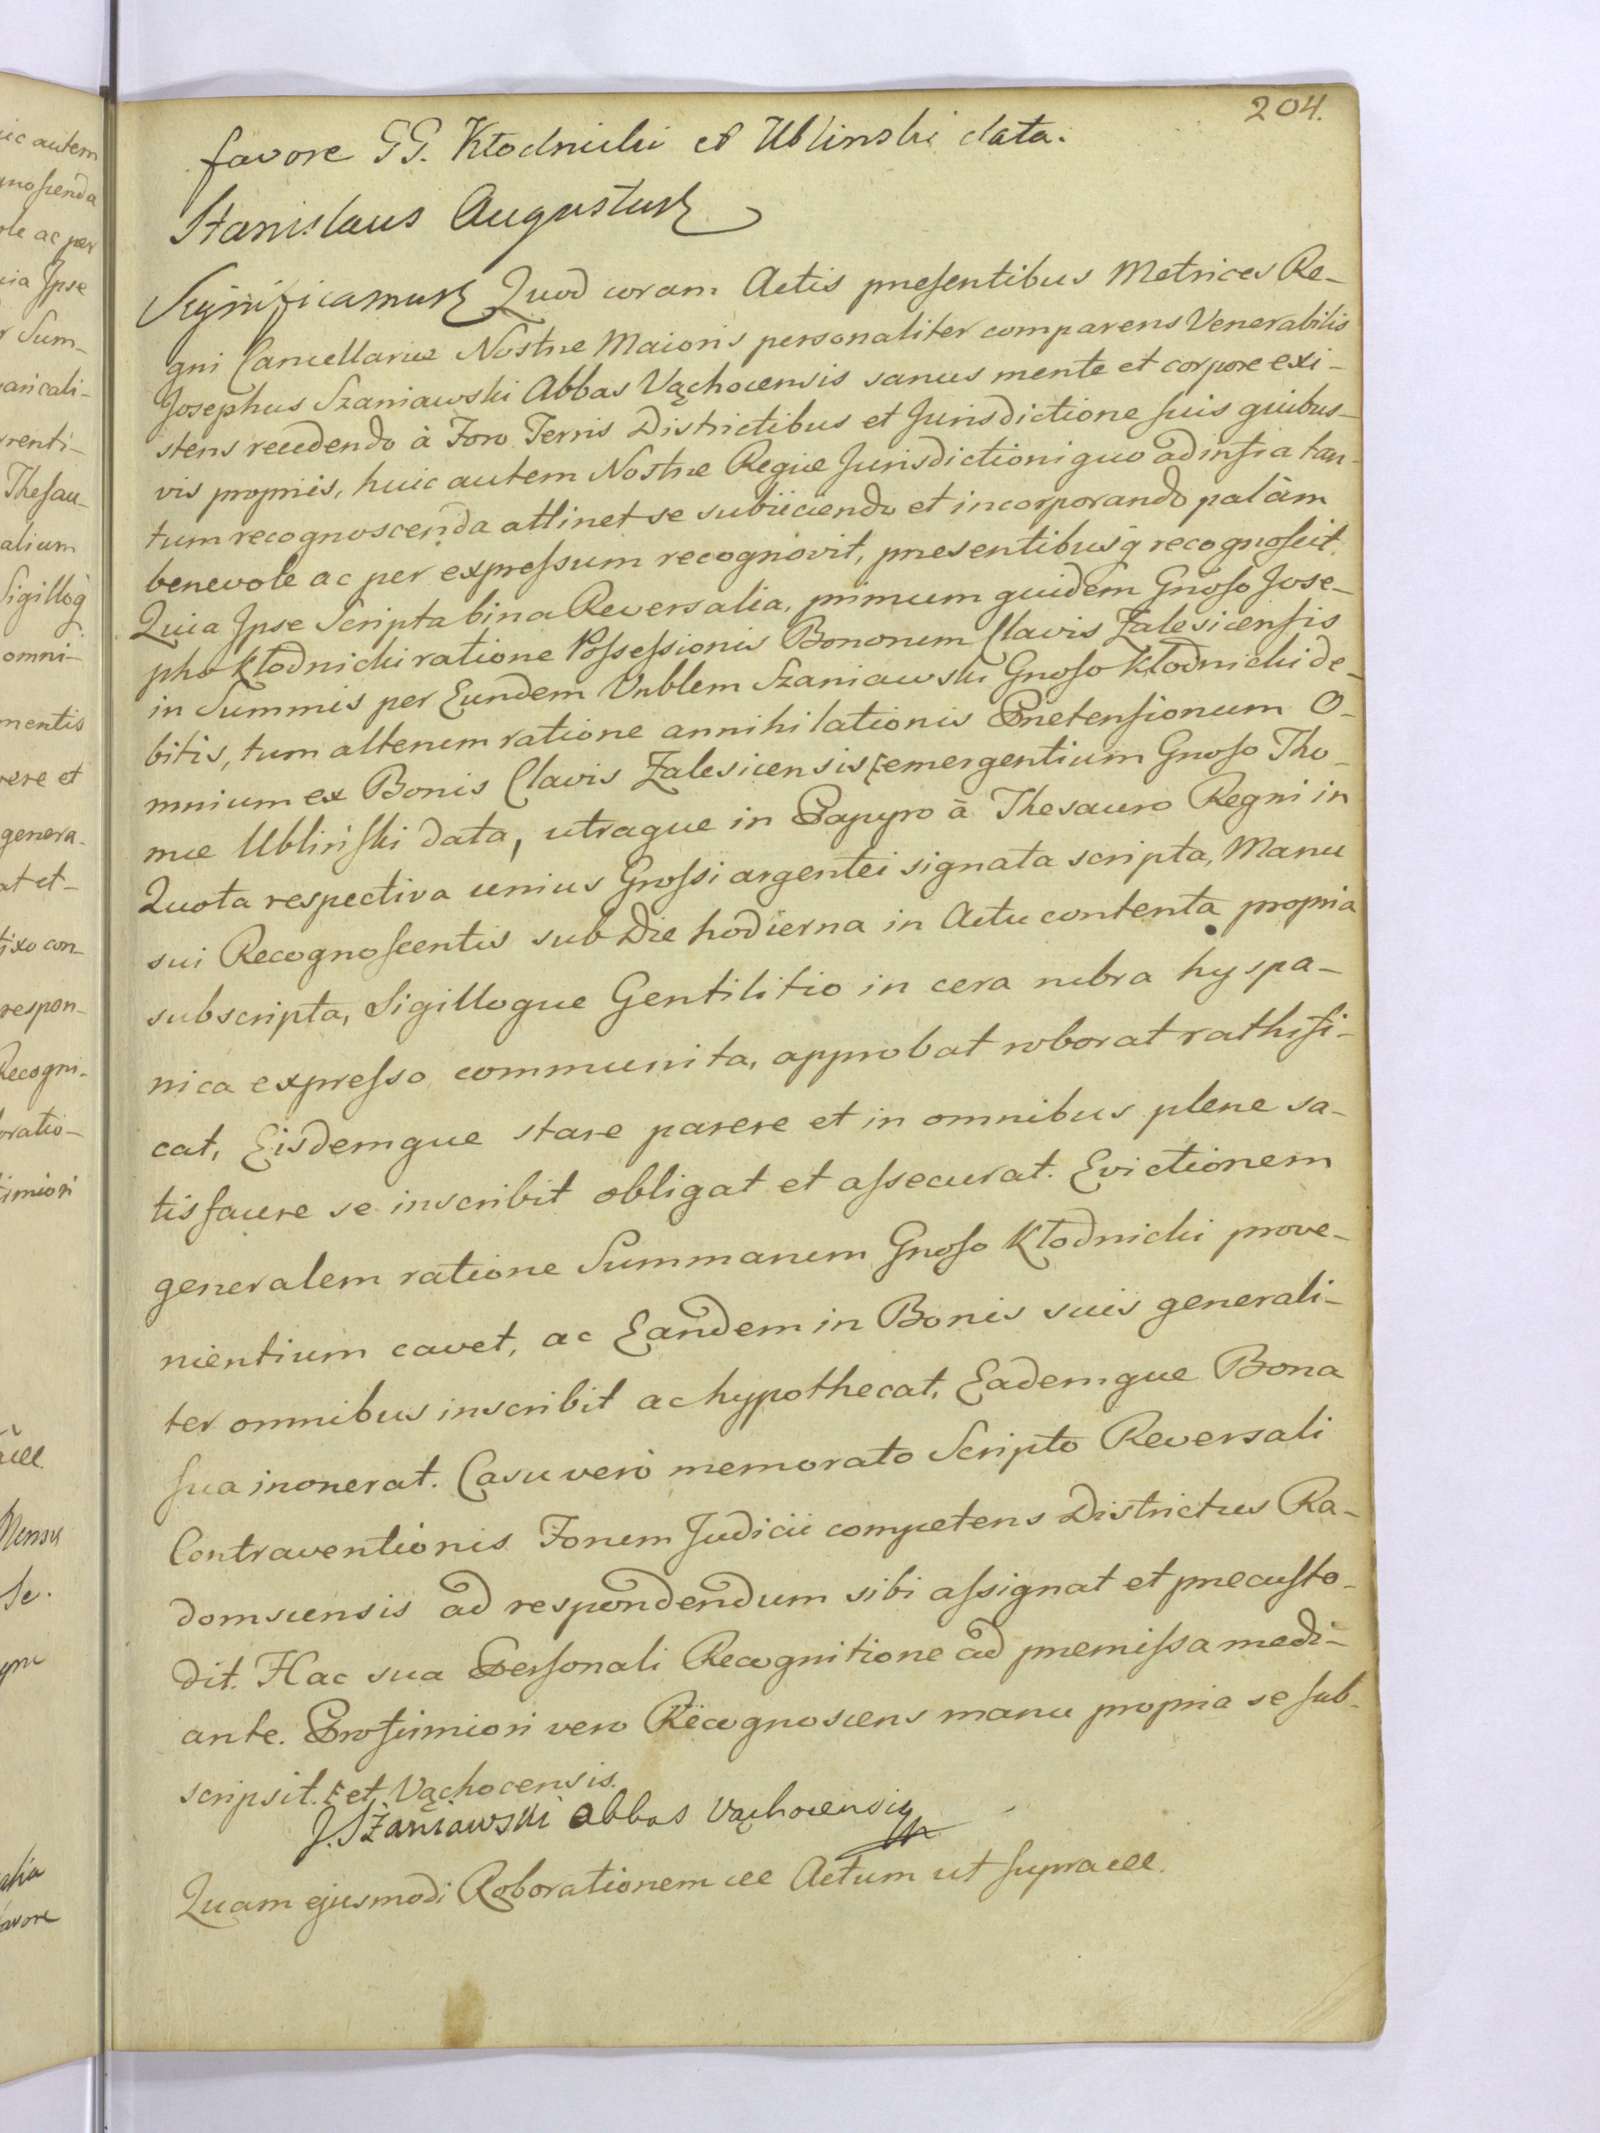 204.
favore GG. Kłodnicki et Ublinski data.
Stanislaus Augustus
Significamus Quod coram Actis præsentibus Metrices Re-
gni Cancellariæ Nostræ Maioris personaliter comparens Venerabilis
Josephus Szaniawski Abbas Vąchocensis sanus mente et corpore exi-
stens recedendo à Foro Terris Districtibus et Jurisdictione suis quibus-
vis propriis, huic autem Nostræ Regiæ Jurisdictioni quo ad infra tan-
tum recognoscenda attinet se subiiciendo et incorporando palàm
benevole ac per expressum recognovit, præsentibusq̃ recognoscit.
Quia Ipse Scripta bina Reversalia, primum quidem Gnoso Jose-
pho Kłodnicki ratione Possessionis Bonorum Clavis Zalesicensis
in Summis per Eundem Vnblem Szaniawski Gnoso Kłodnicki de-
bitis, tum alterum ratione annihilationis Prætensionum O-
mnium ex Bonis Clavis Zalesicensis emergentium Gnoso Tho-
mæ Ubliński data, utraque in Papyro à Thesauro Regni in
Quota respectiva unius Grossi argentei signata scripta, Manu
sui Recognoscentis sub Die hodierna in Actu contenta propria
subscripta, Sigilloque Gentilitio in cera rubra hyspa-
nica expresso communita, approbat roborat rathifi-
cat, Eisdemque stare parere et in omnibus plene sa-
tisfacere se inscribit obligat et assecurat. Evictionem
generalem ratione Summarum Gnoso Kłodnicki prove-
nientium cavet, ac Eandem in Bonis suis generali-
ter omnibus inscribit ac hypothecat, Eademque Bona
sua inonerat. Casu verò memorato Scripto Reversali
Contraventionis Forum Judicii competens Districtus Ra-
domscensis ad respondendum sibi assignat et præcusto-
dit. Hac sua Personali Recognitione ad præmissa medi-
ante. Pro firmiori vero Recognoscens manu propria se sub-
scripsit. et Vąchocensis.
J. Szaniawski Abbas Vąchocensis
Quam ejusmodi Roborationem Actum ut supra
uic autem
gnoscenda
ole ac per
uia Ipse
r Sum-
aricali-
rrenti-
Thesau-
alium
Sigilloq̃
omni-
mentis
rere et
genera-
at et-
fixo con-
respon-
Recogni-
oratio-
firmiori
Mensis
favore